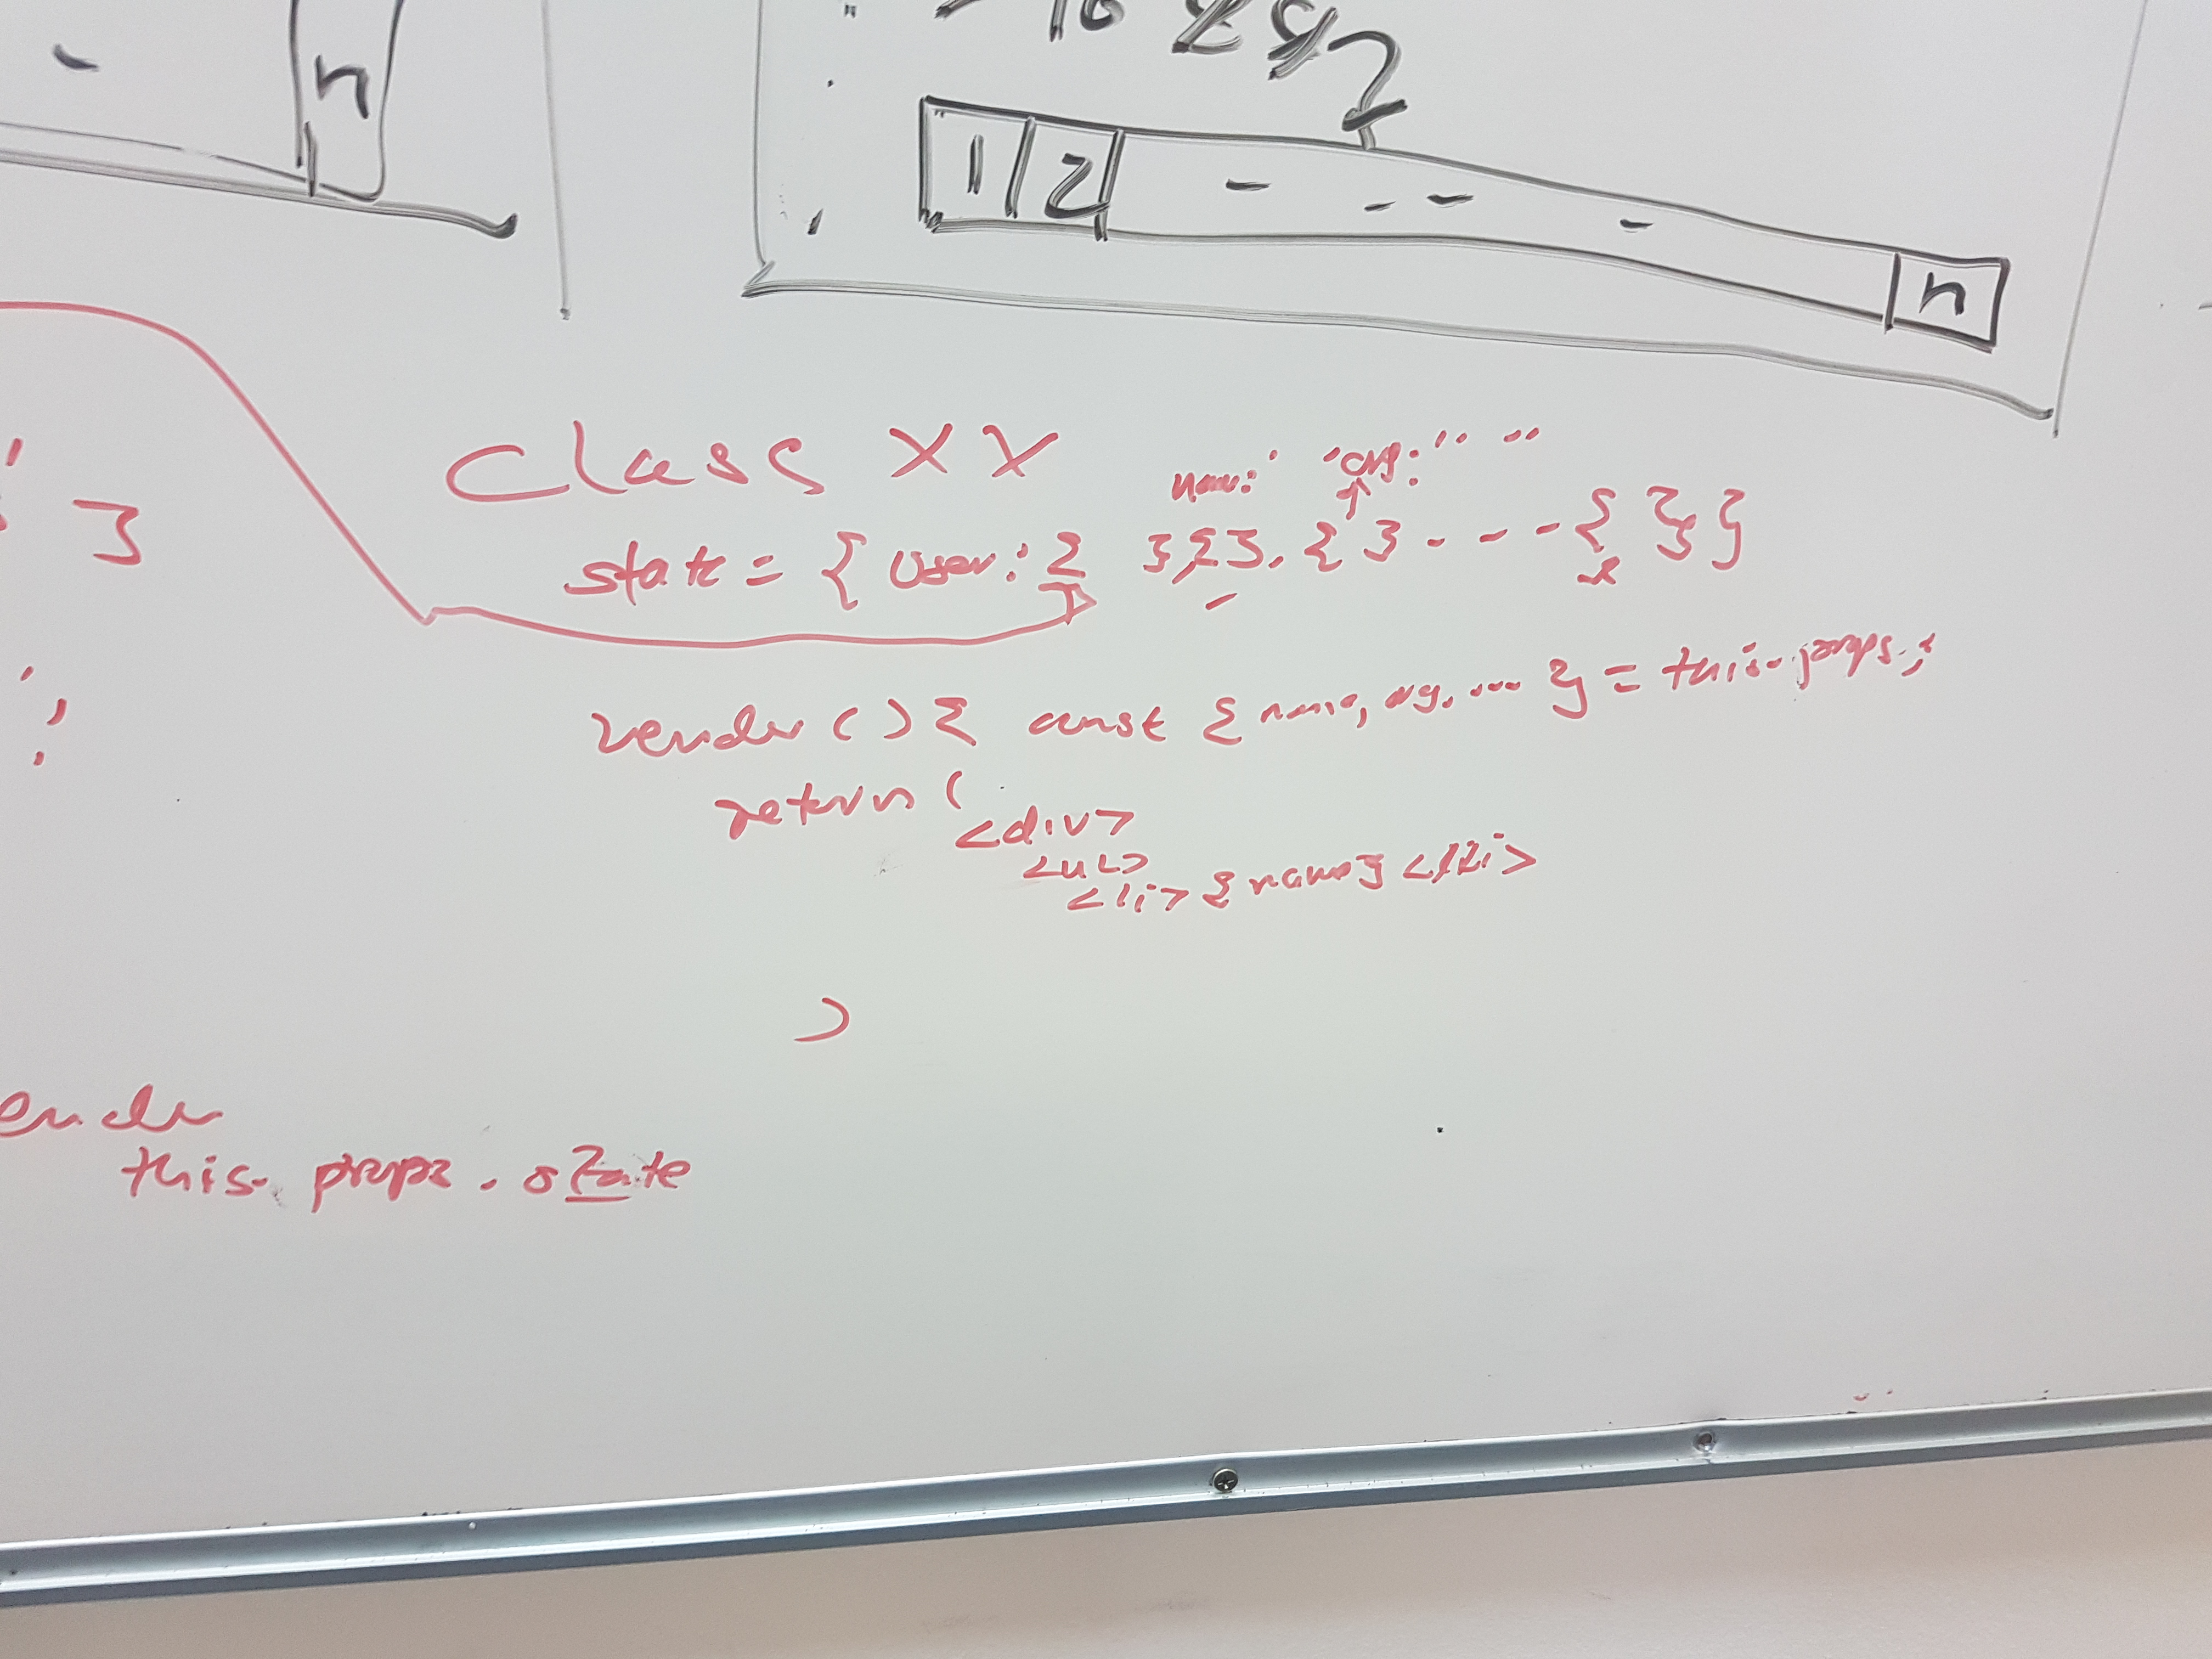 n
1 2 - - - - n
class XX
name: ' ' org: " "
state = { user: { }, { }, { } - - - { } }
render () { const { name, org, ... } = this.props;
return (
<div>
<ul>
<li> {name} </li>
)
this.props.state